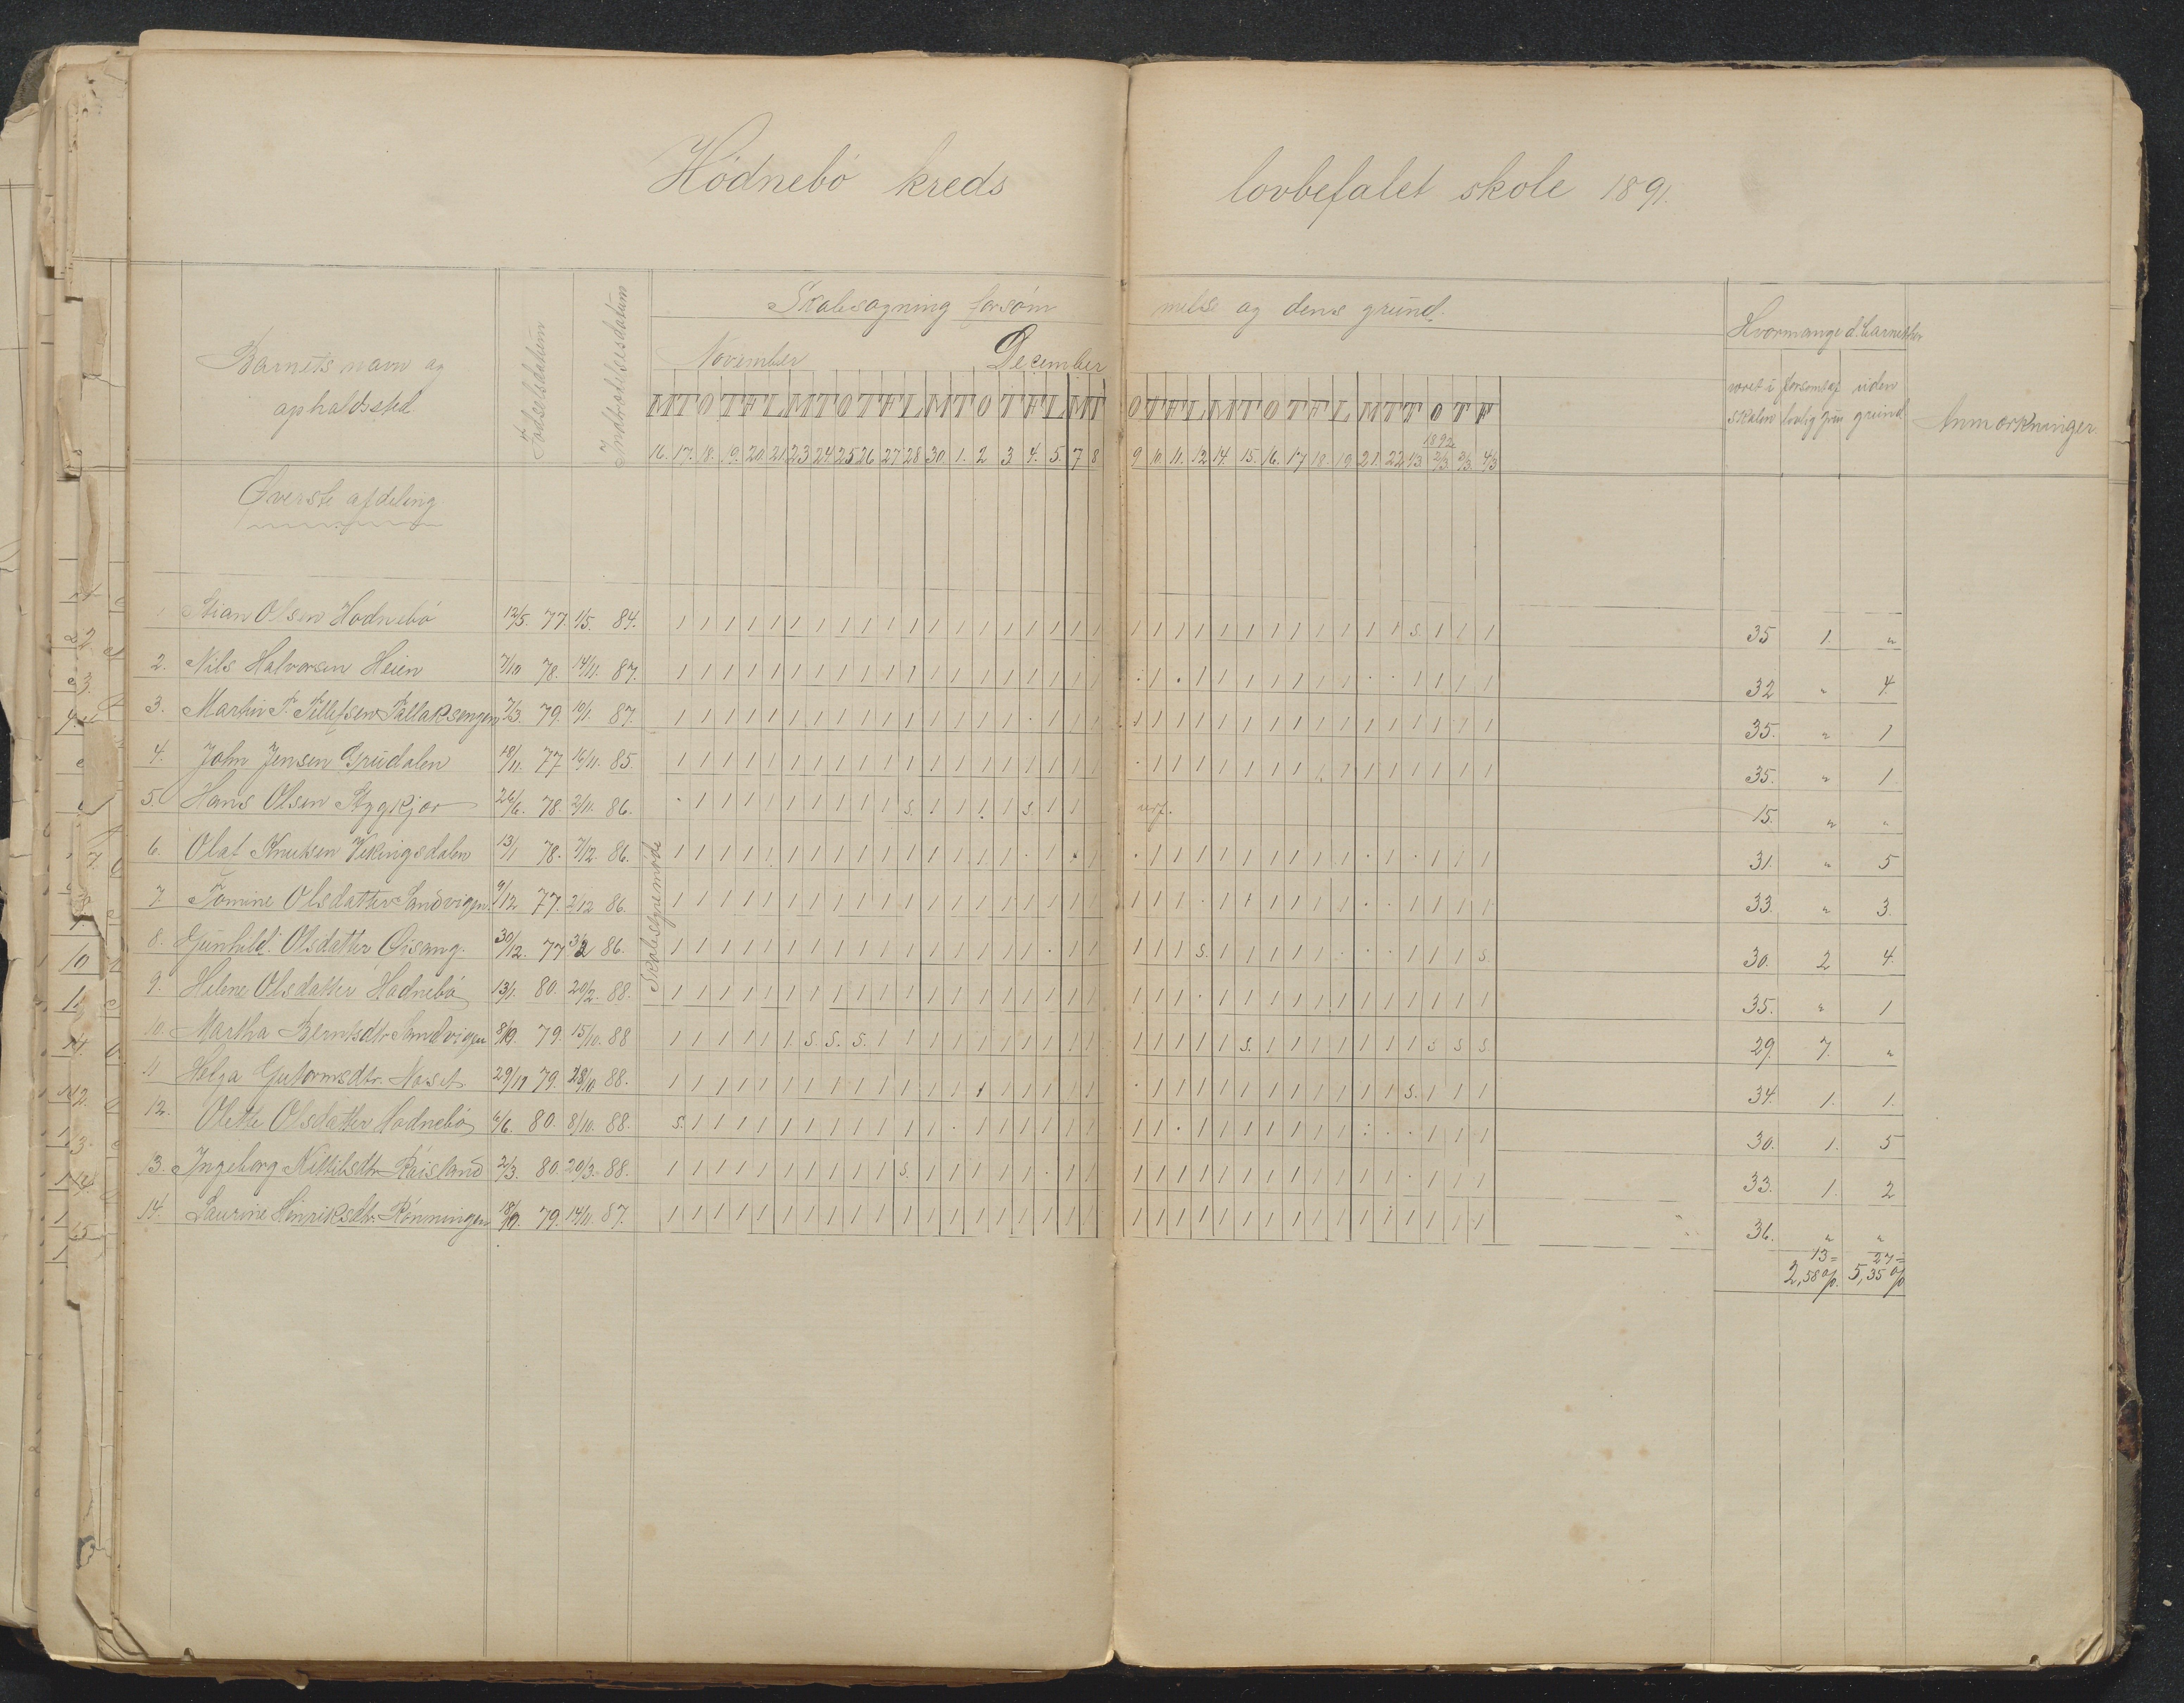 Hödnebö kreds lovbefalet skole 1891.
Skolesøgning forsöm melse og dens grund.
Hvormange d. barnet har
Barnets navn og opholdssted
Fødselsdatum
Indtrædelsesdatum
November December
været i skolen
forsömt af lovlig grün
uden grund
Anmærkninger.
M T O T F L M T O T F L M T O T F L M T O T F L M T O T F L M T T O T F
16. 17. 18. 19. 20 21 23 24 25 26 27 28 30 1. 2 3 4. 5. 7 8 9 10 11. 12 14. 15. 16. 17 18. 19 21. 22
1892
2/3. 3/3. 4/3
Øverste afdeling
Skolestyremøde
1 Stian Olsen Hødnebö 12/5. 77. 1/5. 84. 35 1. "
2. Nils Halvorsen Heien 7/10 78. 14/11. 87. 32 " 4.
3. Martin T. Tellefsen Tallaksengen 7/3. 79. 10/1. 87. 35. " 1
4. John Jensen Grüdalen 18/11. 77 16/11. 85. 35. " 1.
5. Hans Olsen Stygkjær 26/6. 78. 2/11. 86. 15. " "
6. Olaf Knutsen Vikingsdalen 13/1 78. 7/2. 86. 31. " 5
7 Tomine Olsdatter Sandvigen. 9/12 77. 2/12 86. 33. " 3.
8. Günhild Olsdatter Øisang. 30/12. 77 86. 30. 2 4.
9. Helene Olsdatter Hødnebö 13/1. 80. 20/2. 88. 35. " 1
10. Martha Berntsdtr Sandvigen 79. 15/10. 88 29. 7. "
11 Helga Gutormsdtr. Næset 29/11 79. 28/10 88. 34. 1. 1.
12. Olette Olsdatter Hødnebö 6/6. 80. 8/10. 88. 30. 1. 5
13. Ingeborg Kittilsdtr Röisland 2/3. 80. 20/3. 88. 33. 1. 2
14. Laurine Henriksdtr. Rönningen 79. 14/11. 87. 36. " "
13= 27=
2,58 %. 5,35 %